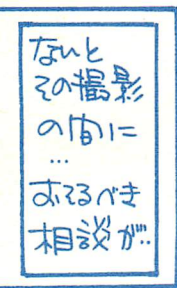 なんと
その撮影
の間に
…
おそるべき
相談が‥